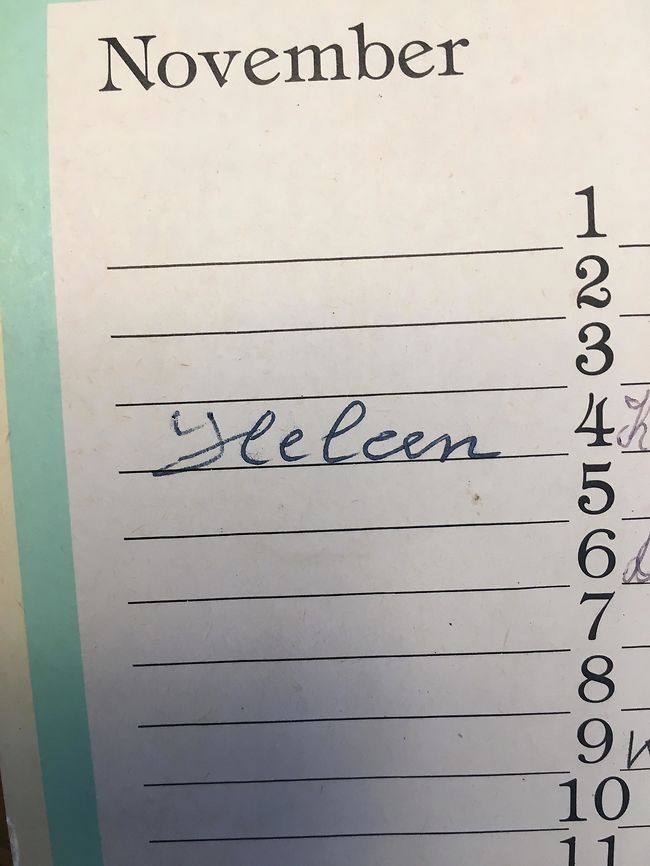 November
1
2
3
Heleen 4
5
6
7
8
9
10
11